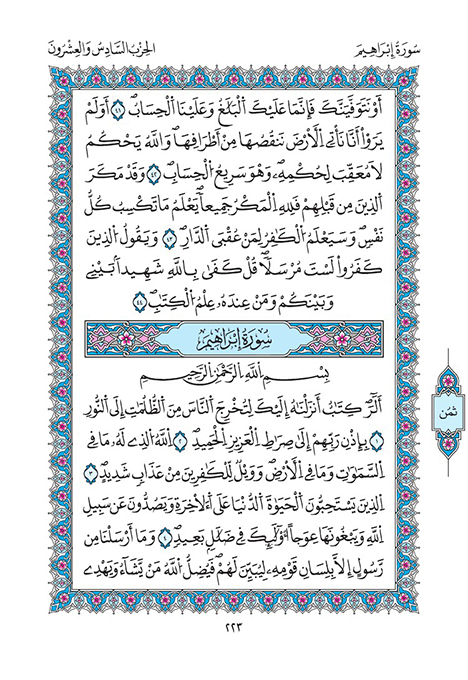 سُورَةُ إِبْرَاهِيمَ
الحِزْبُ السَّادِسُ وَالْعِشْرُونَ
أَوْ نَتَوَفَّيَنَّكَ فَإِنَّمَا عَلَيْكَ اَلْبَلَٰغُ وَعَلَيْنَا اَلْحِسَابُۖ ٤١ أَوَلَمْ
يَرَوَاْ اَنَّا نَأْتِے اِلْأَرْضَ نَنقُصُهَا مِنَ اَطْرَافِهَاۖ وَاللَّهُ يَحْكُمُ
لَا مُعَقِّبَ لِحُكْمِهِۦۖ وَهُوَ سَرِيعُ اُلْحِسَابِۖ ٤٢ وَقَدْ مَكَرَ
اَلذِينَ مِن قَبْلِهِمْ فَلِلهِ اِلْمَكْرُ جَمِيعاٗۖ يَعْلَمُ مَا تَكْسِبُ كُلُّ
نَفْسٖۖ وَسَيَعْلَمُ اُلْكَٰفِرُ لِمَنْ عُقْبَى اَلدّ۪ارِۖ ٤٣ وَيَقُولُ اُلذِينَ
كَفَرُواْ لَسْتَ مُرْسَلاٗۖ قُلْ كَف۪ىٰ بِاللَّهِ شَهِيداَۢ بَيْنِے
وَبَيْنَكُمْ وَمَنْ عِندَهُۥ عِلْمُ اُلْكِتَٰبِۖ ٤٤
سُورَةُ إِبْرَاهِيمَ
بِسْمِ اِللَّهِ اِلرَّحْمَٰنِ اِلرَّحِيمِ
أَلَٓر۪ۖ كِتَٰبٌ اَنزَلْنَٰهُ إِلَيْكَ لِتُخْرِجَ اَلنَّاسَ مِنَ اَلظُّلُمَٰتِ إِلَى اَلنُّورِ
١ بِإِذْنِ رَبِّهِمُۥٓ إِلَىٰ صِرَٰطِ اِلْعَزِيزِ اِلْحَمِيدِۖ ٢ اِللَّهُ اُلذِے لَهُۥ مَا فِے
اِلسَّمَٰوَٰتِ وَمَا فِے اِلْأَرْضِۖ وَوَيْلٞ لِّلْكٰ۪فِرِينَ مِنْ عَذَابٖ شَدِيدٍۖ ٣
اِلذِينَ يَسْتَحِبُّونَ اَلْحَيَوٰةَ اَلدُّنْيَا عَلَى اَلَاخِرَةِ وَيَصُدُّونَ عَن سَبِيلِ
اِللَّهِ وَيَبْغُونَهَا عِوَجاًۖ اُوْلَٰٓئِكَ فِے ضَلَٰلِۢ بَعِيدٖۖ ٤ وَمَآ أَرْسَلْنَا مِن
رَّسُولٍ اِلَّا بِلِسَانِ قَوْمِهِۦ لِيُبَيِّنَ لَهُمْۖ فَيُضِلُّ اُللَّهُ مَنْ يَّشَآءُ وَيَهْدِے
ثُمُن
٢٢٣